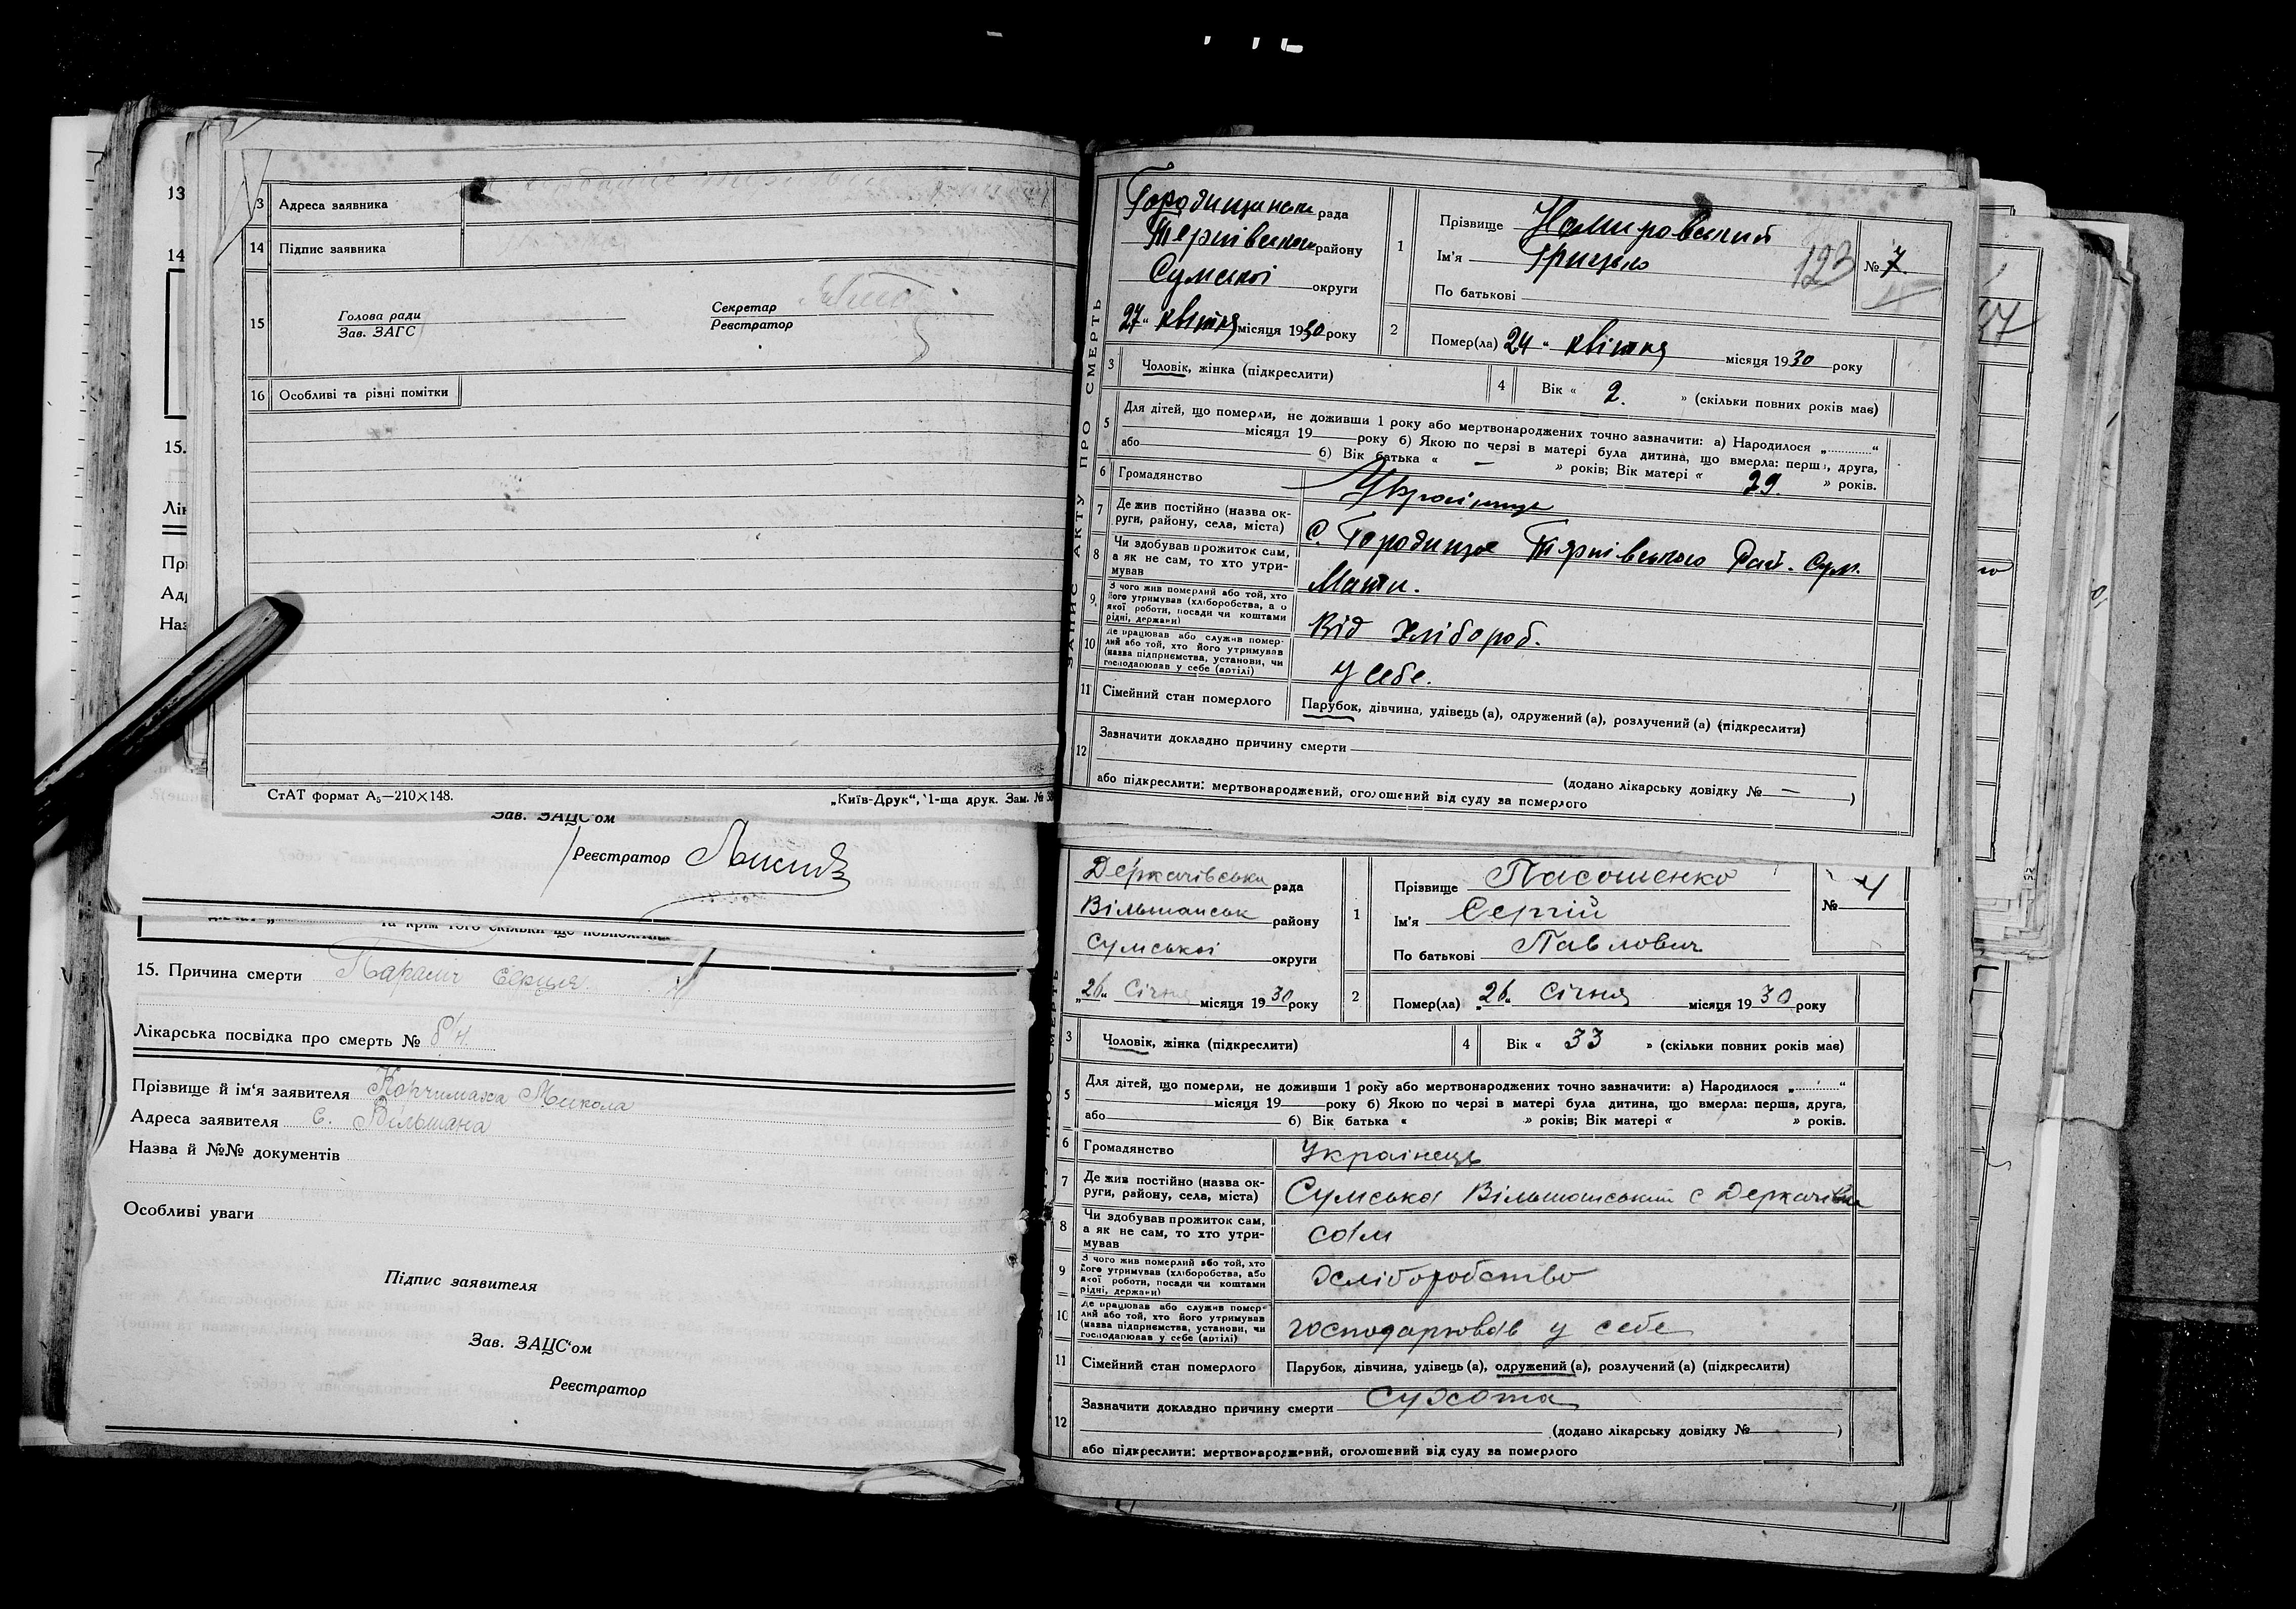 13
14
15.
Лік
Прі
Адр
Наз
3 Адреса заявника
14 Підпис заявника
15 Голова ради
Зав. ЗАГС
Секретар
Реєстратор
16 Особливі та різні помітки
СтАТ формат А₅—210×148.
„Київ-Друк“, 1-ща друк. Зам. №
Зав. ЗАЦС'ом
Реєстратор
та крім того скільки ще
15. Причина смерти Параліч серця
Лікарська посвідка про смерть № б/н.
Прізвище й ім'я заявителя Корчимаха Микола
Адреса заявителя с. Вільшана
Назва й №№ документів
Особливі уваги
Підпис заявителя
Зав. ЗАЦС'ом
Реєстратор
ЗАПИС АКТУ ПРО СМЕРТЬ
Городищенська рада
Тернівського району
Сумської округи
27 „ квітня місяця 1930 року
1 Прізвище
Ім'я Грицько
По батькові
123
№ 7
2 Помер(ла) 24 „ квітня місяця 1930 року
3 Чоловік, жінка (підкреслити)
4 Вік « 2. » (скільки повних років має)
5 Для дітей, що померли, не доживши 1 року або мертвонароджених точно зазначити: а) Народилося „ “
місяця 19 року б) Якою по черзі в матері була дитина, що вмерла: перша, друга,
або б) Вік батька « – » років; Вік матері « 29. » років.
6 Громадянство Українець
7 Де жив постійно (назва округи, району, села, міста) С. Городище Тернівського Рай. Сум.
8 Чи здобував прожиток сам, а як не сам, то хто утримував Мати.
9. З чого жив померлий або той, хто його утримував (хліборобства, а о якої роботи, посади чи коштами рідні, держави) Від хлібороб.
10 Де працював або служив померлий або той, хто його утримував (назва підприємства, установи, чи господарював у себе (артілі) У себе.
11 Сімейний стан померлого Парубок, дівчина, удівець (а), одружений (а), розлучений (а) (підкреслити)
12 Зазначити докладно причину смерти
(додано лікарську довідку № — )
або підкреслити: мертвонароджений, оголошений від суду за померлого
Деркачівська рада
Вільшанськ району
Сумської округи
„26“ Січня місяця 1930 року
1 Прізвище Пасошенко
Ім'я Сергій
По батькові Павлович
№ 4
2 Помер(ла) „26„ Січня місяця 1930 року
3 Чоловік, жінка (підкреслити)
4 Вік « 33 » (скільки повних років має)
5 Для дітей, що померли, не доживши 1 року або мертвонароджених точно зазначити: а) Народилося „ “
місяця 19 року б) Якою по черзі в матері була дитина, що вмерла: перша, друга,
або б) Вік батька « » років; Вік матері « » років.
6 Громадянство Українець
7 Де жив постійно (назва округи, району, села, міста) Сумська Вільшанський с Деркачівка
8 Чи здобував прожиток сам, а як не сам, то хто утримував сам
9 З чого жив померлий або той, хто його утримував (хліборобства, або якої роботи, посади чи коштами рідні, держави) Хліборобство
10 Де працював або служив померлий або той, хто його утримував (назва підприємства, установи, чи господарював у себе (артілі) господарював у себе
11 Сімейний стан померлого Парубок, дівчина, удівець (а), одружений (а), розлучений (а) (підкреслити)
12 Зазначити докладно причину смерти Сухота
(додано лікарську довідку № )
або підкреслити: мертвонароджений, оголошений від суду за померлого